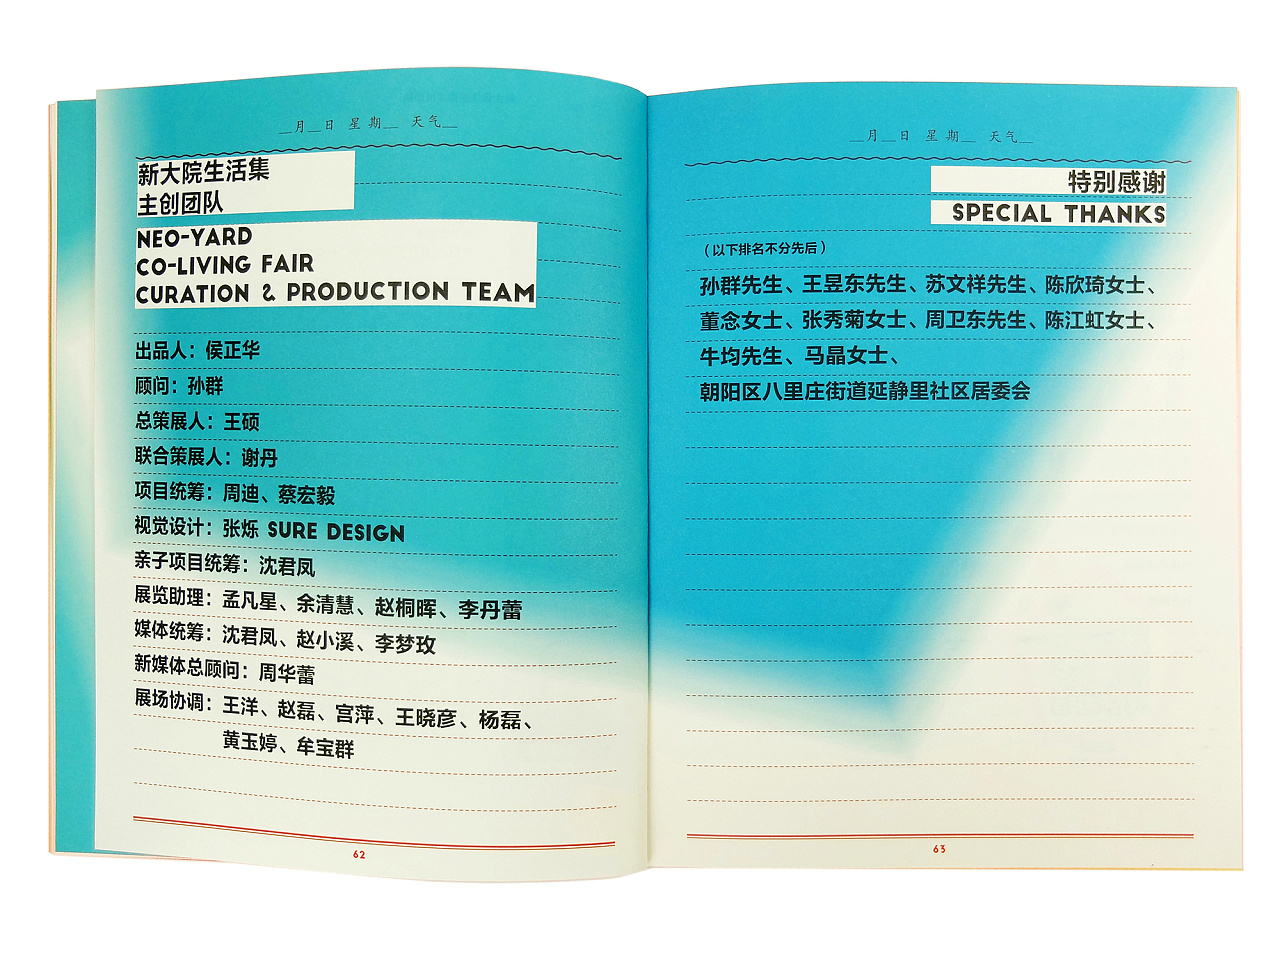 __月__日 星期__ 天气__
新大院生活集
主创团队
NEO-YARD
CO-LIVING FAIR
CURATION & PRODUCTION TEAM
出品人：侯正华
顾问：孙群
总策展人：王硕
联合策展人：谢丹
项目统筹：周迪、蔡宏毅
视觉设计：张烁 SURE DESIGN
亲子项目统筹：沈君凤
展览助理：孟凡星、余清慧、赵桐晖、李丹蕾
媒体统筹：沈君凤、赵小溪、李梦玫
新媒体总顾问：周华蕾
展场协调：王洋、赵磊、宫萍、王晓彦、杨磊、
黄玉婷、牟宝群
62
__月__日 星期__ 天气__
特别感谢
SPECIAL THANKS
（以下排名不分先后）
孙群先生、王昱东先生、苏文祥先生、陈欣琦女士、
董念女士、张秀菊女士、周卫东先生、陈江虹女士、
牛均先生、马晶女士、
朝阳区八里庄街道延静里社区居委会
63